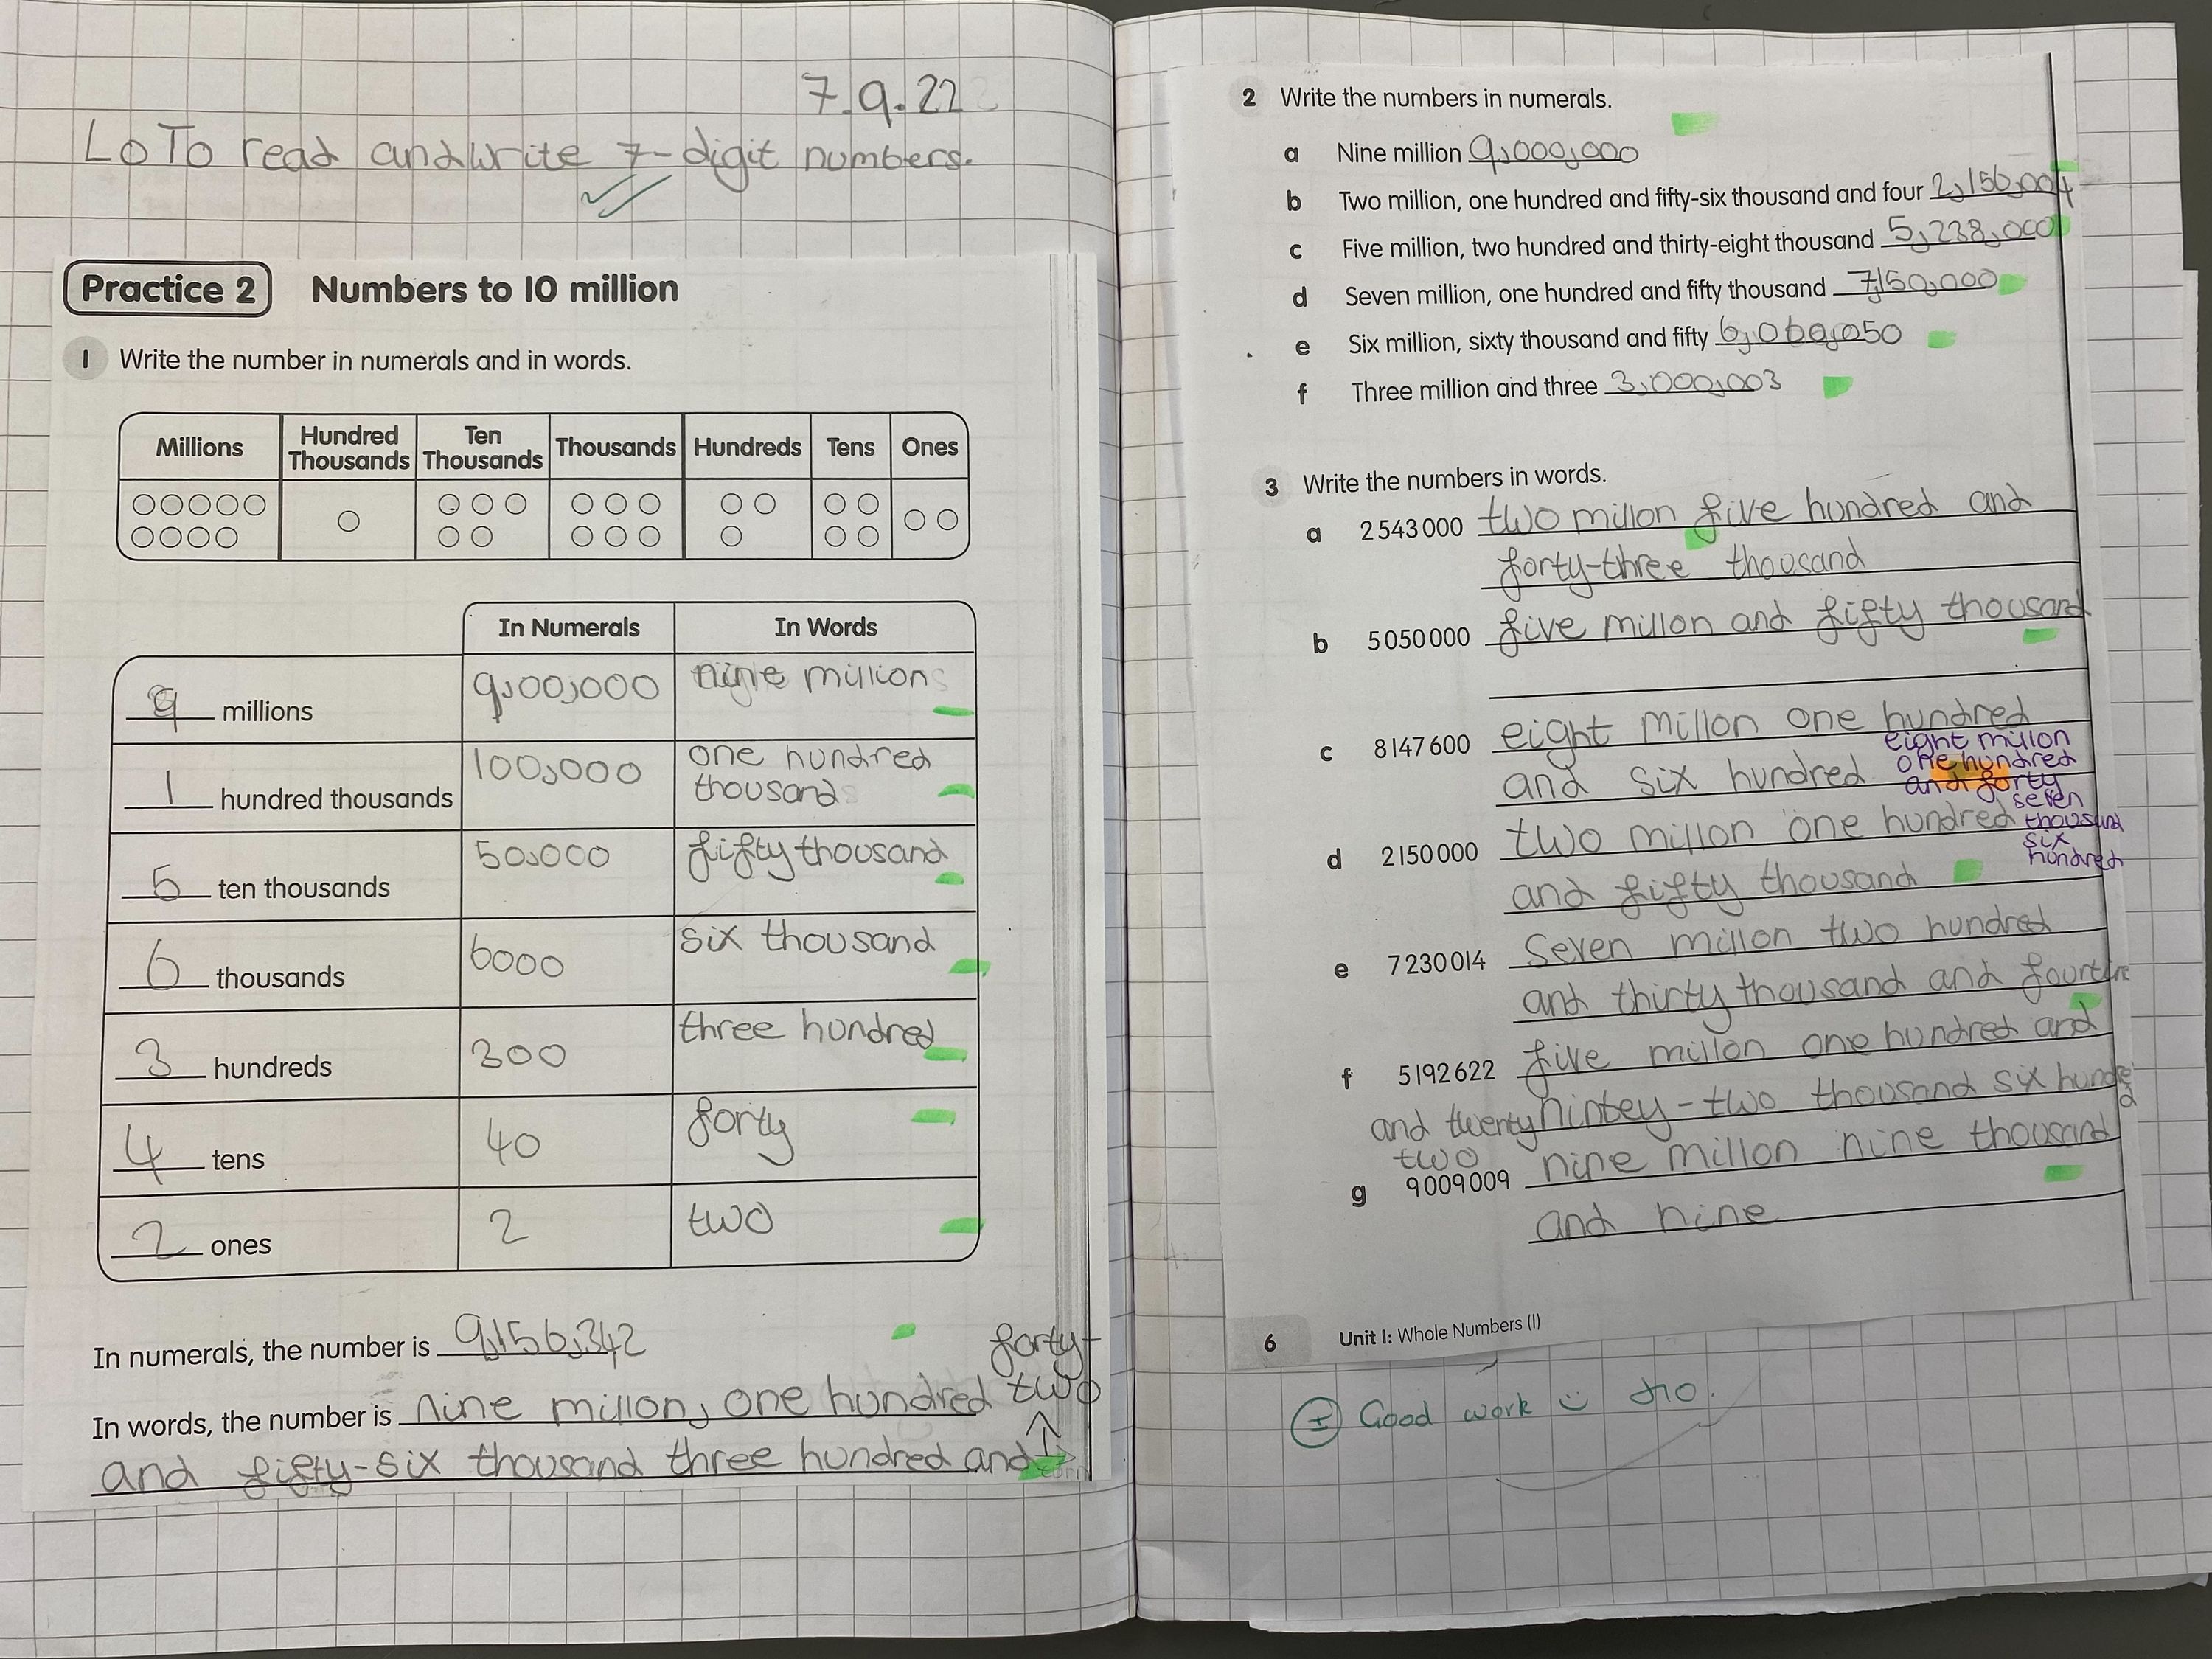 7.9.22
LO To read and write 7-digit numbers.
Practice 2 Numbers to 10 million
1 Write the number in numerals and in words.
Millions Hundred Thousands Ten Thousands Thousands Hundreds Tens Ones
In Numerals In Words
9 millions 9,00,000 nine million
1 hundred thousands 100,000 one hundred
thousand
5 ten thousands 50,000 fifty thousand
6 thousands 6000 six thousand
3 hundreds 300 three hundred
4 tens 40 forty
2 ones 2 two
In numerals, the number is 9,156,342
In words, the number is nine millon, one hundred
and fifty-six thousand three hundred and
forty-
two
2 Write the numbers in numerals.
a Nine million 9,000,000
b Two million, one hundred and fifty-six thousand and four 2,156,004
c Five million, two hundred and thirty-eight thousand 5,238,000
d Seven million, one hundred and fifty thousand 7,150,000
e Six million, sixty thousand and fifty 6,060,050
f Three million and three 3,000,003
3 Write the numbers in words.
a 2543000 two millon five hundred and
forty-three thousand
b 5050000 five millon and fifty thousand
c 8147600 eight millon one hundred
and six hundred
eight millon
one hundred
and forty
seven
thousand
six
hundred
d 2150000 two millon one hundred
and fifty thousand
e 7230014 seven millon two hundred
and thirty thousand and
f 5192622 five millon one hundred and
nintey-two thousand six hundred
and twenty
two
g 9009009 nine millon nine thousand
and nine
6 Unit 1: Whole Numbers (1)
Good work